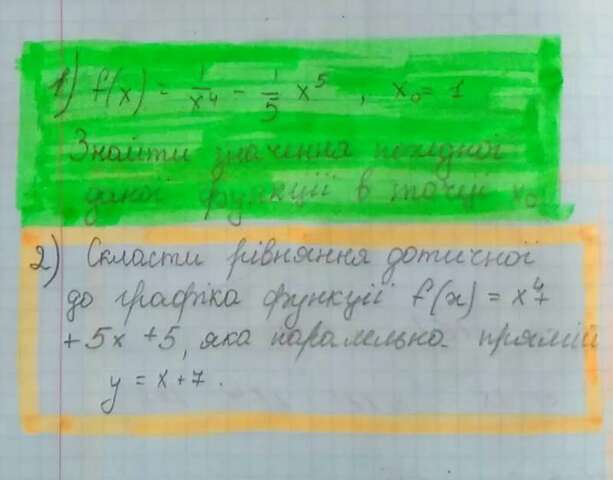 1) f(x) = 1/x⁴ - 1/5 x⁵ , x₀ = 1
Знайти значення похідної
даної функції в точці x₀
2) Скласти рівняння дотичної
до графіка функції f(x) = x⁴+
+ 5x + 5, яка паралельна прямій
y = x + 7.